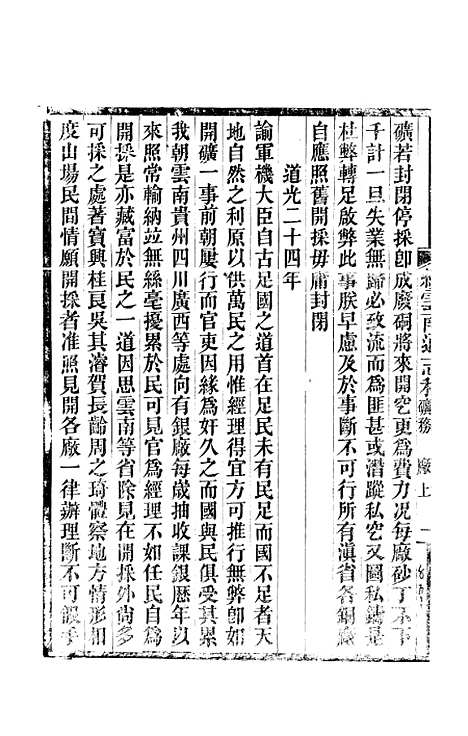 礦若封閉停採卽成廢硐將來開空更爲費力况每廠砂丁不下
千計一旦失業無歸必致流而爲匪甚或潛蹤私空又圖私鑄是
杜弊轉足啟弊此事朕早慮及於事斷不可行所有滇省各銅廠
自應照舊開採毋庸封閉
道光二十四年
諭軍機大臣自古足國之道首在足民未有民足而國不足者天
地自然之利原以供萬民之用惟經理得宜方可推行無弊卽如
開礦一事前朝屢行而官吏因緣爲奸久之而國與民俱受其累
我朝雲南貴州四川廣西等處向有銀廠每歲抽收課銀歷年以
來照常輸納並無絲毫擾累於民可見官爲經理不如任民自爲
開採是亦藏富於民之一道因思雲南等省除見在開採外尚多
可採之處著寶興桂良吳其濬賀長齡周之琦體察地方情形相
度山場民間情願開採者准照見開各廠一律辦理斷不可假手
雲南通志 礦務 廠上 一